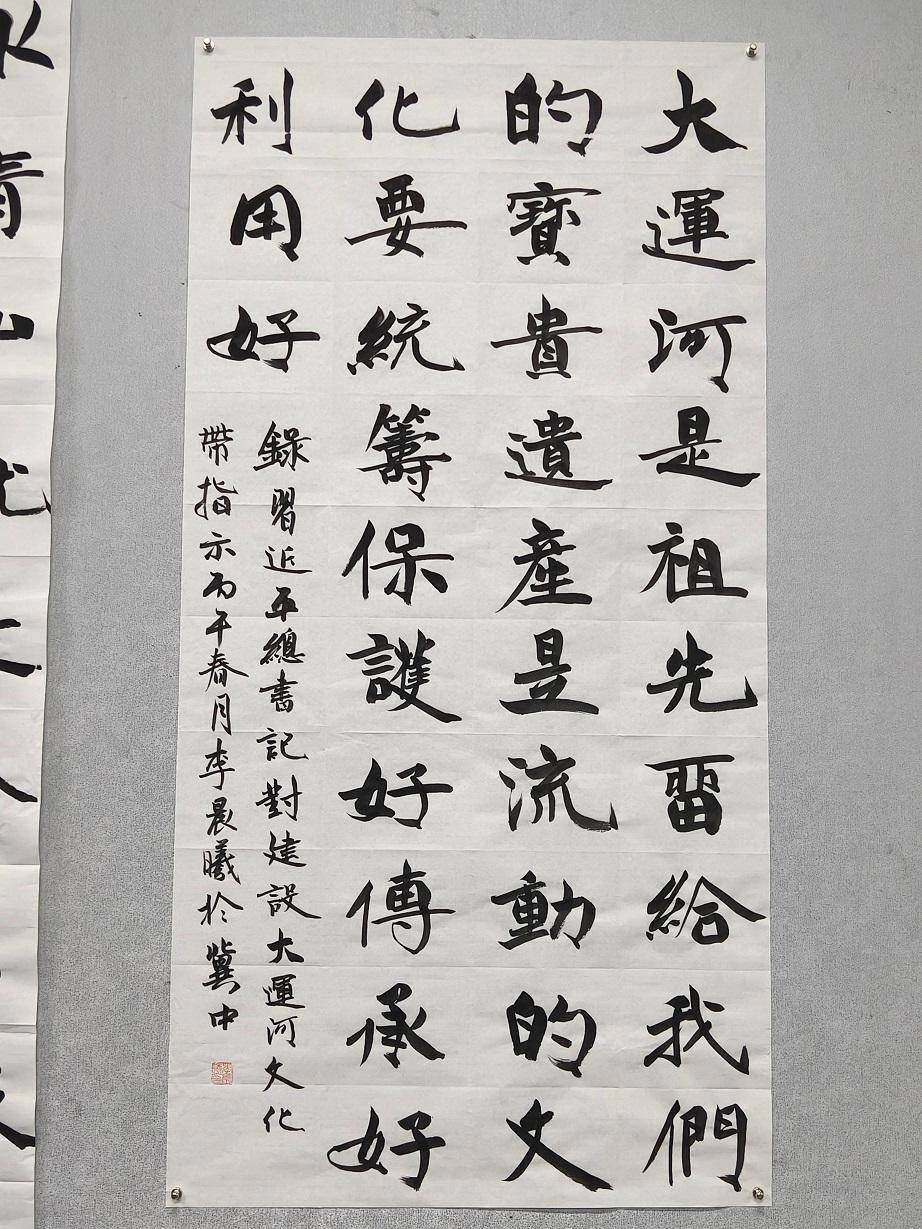 大運河是祖先留給我們
的寶貴遺產是流動的文
化要統籌保護好傳承好
利用好
錄習近平總書記對建設大運河文化
帶指示丙午春月李晨曦於冀中